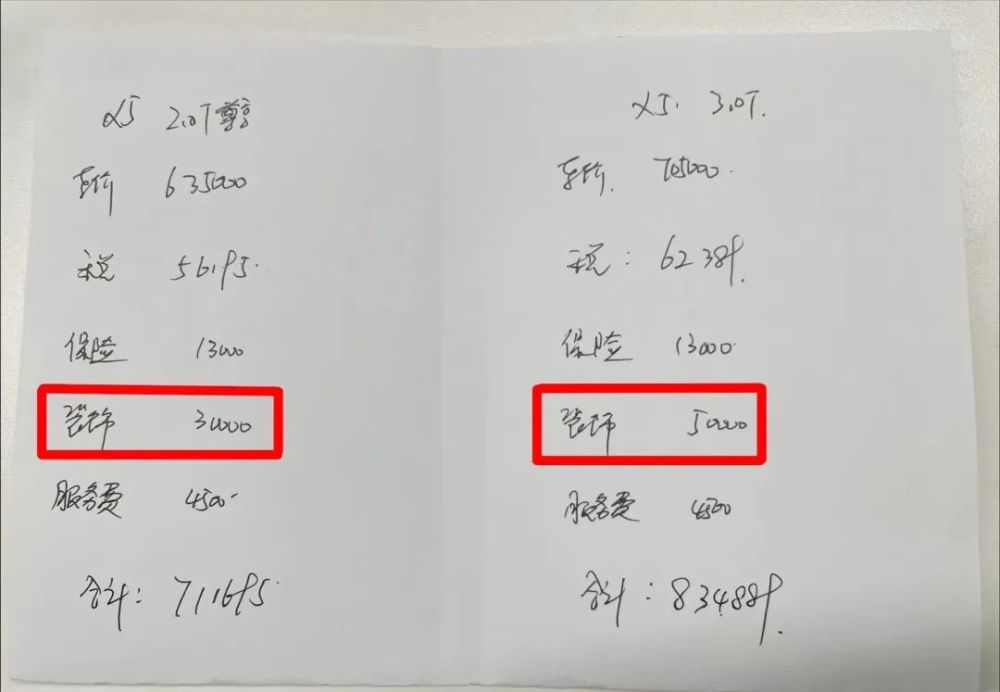 X5 2.0T 尊享
车价 635000
税 56195.
保险 13000
装饰 30000
服务费 4500
合计: 711695
X5. 3.0T.
车价. 705000.
税: 62389.
保险 13000
装饰 50000
服务费 4500
合计: 834889.